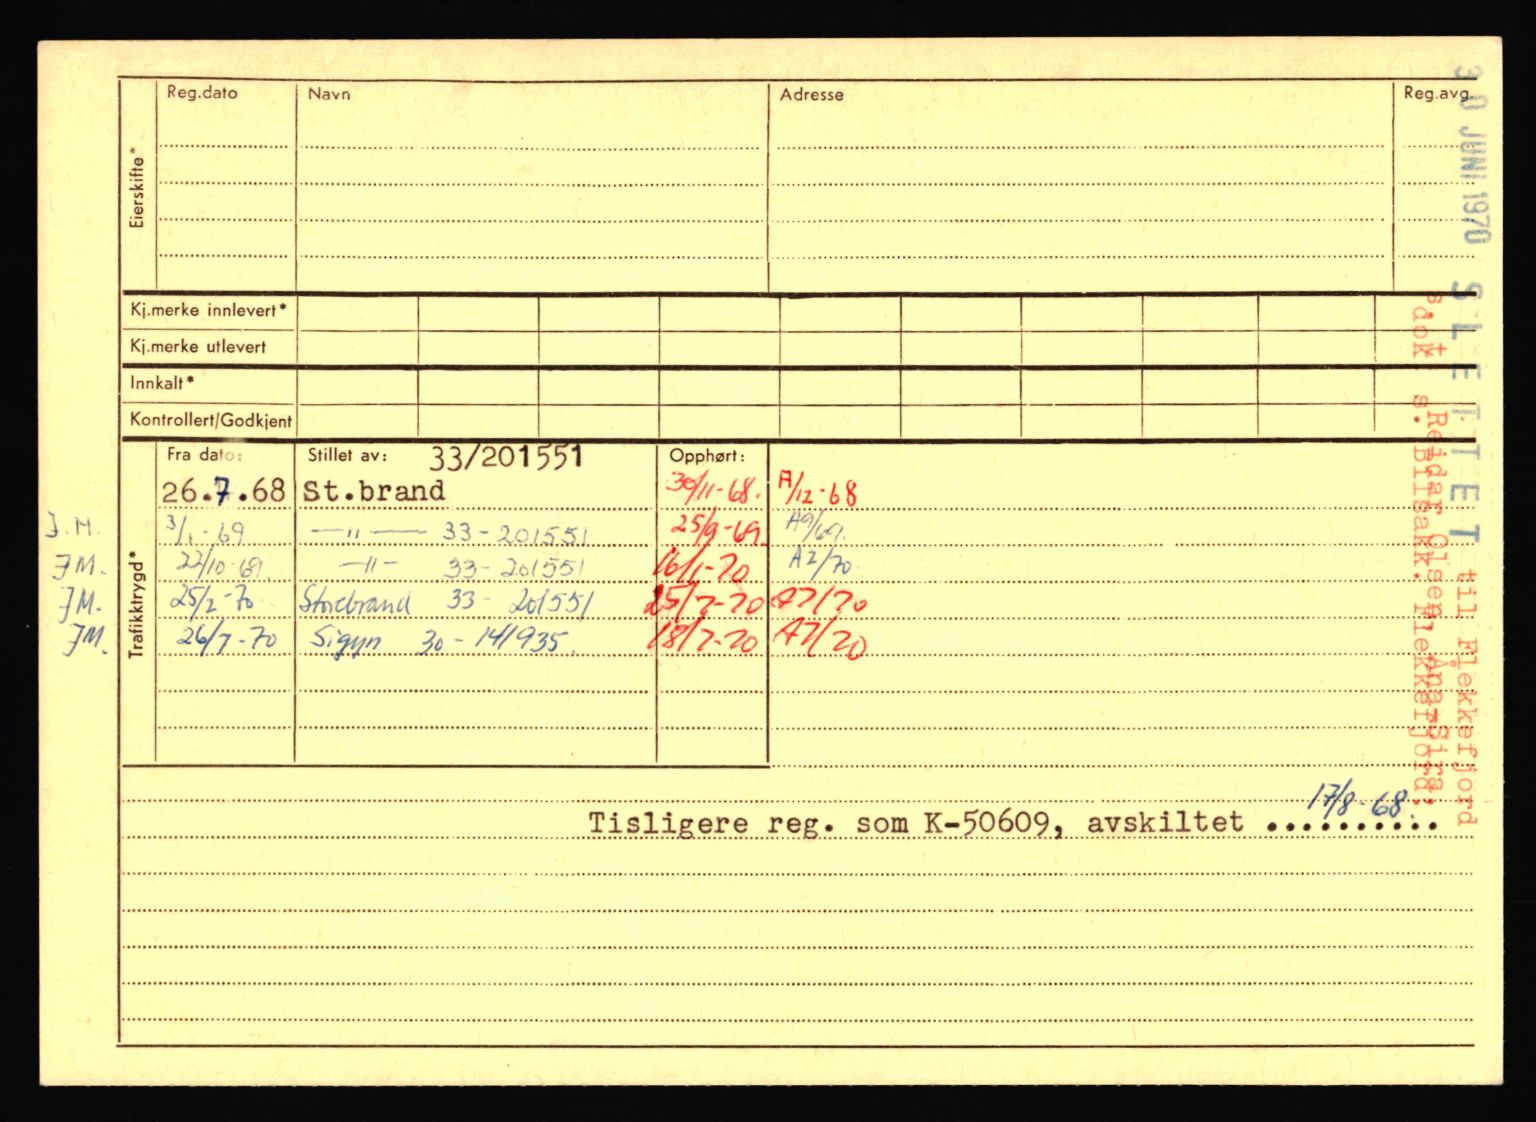 Reg.dato Navn Adresse Reg.avg.
Eierskifte*
Kj.merke innlevert*
Kj.merke utlevert
Innkalt*
Kontrollert/Godkjent
Trafikktrygd*
Fra dato: Stillet av: 33/201551 Opphørt:
26.7.68 St.brand 30/11-68. A/12-68
J.M. 3/1-69 —"— 33-201551 25/9-69. A9/69.
JM. 22/10-69. —"— 33-201551 16/1-70 A2/70
JM. 25/2-70 Storebrand 33-201551 25/7-70 A7/70
JM. 26/7-70 Sigyn 30-141935. 18/7-70 A7/70
Tisligere reg. som K-50609, avskiltet .......... 17/8-68.
30 JUNI 1970 SLETTET til Flekkefjord
Reidar Olsen, Åna-Sira,
s.dok. s. Bilsakk. Flekkefjord.